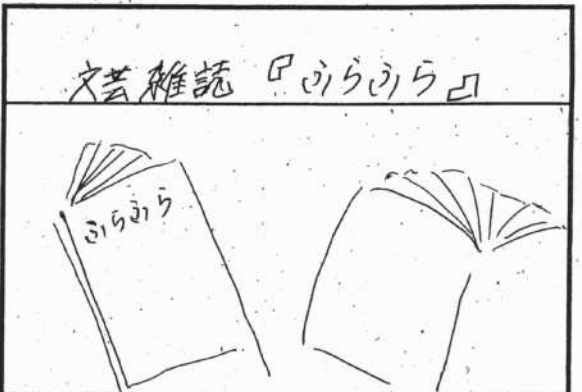 文芸雑誌『ふらふら』
ふらふら